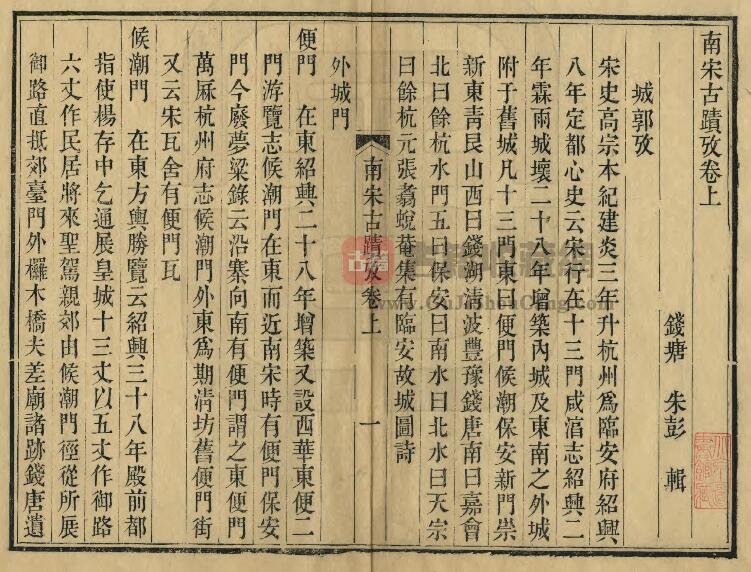 南宋古蹟攷卷上
錢塘 朱彭 輯
城郭攷
宋史高宗本紀建炎三年升杭州爲臨安府紹興
八年定都心史云宋行在十三門咸淳志紹興二
年霖雨城壞二十八年增築內城及東南之外城
附于舊城凡十三門東曰便門候潮保安新門崇
新東青艮山西曰錢湖清波豐豫錢唐南曰嘉會
北曰餘杭水門五曰保安曰南水曰北水曰天宗
曰餘杭元張翥蛻菴集有臨安故城圖詩
外城門
南宋古蹟攷卷上 一
便門 在東紹興二十八年增築又設西華東便二
門游覽志候潮門在東而近南宋時有便門保安
門今廢夢粱錄云沿寨向南有便門謂之東便門
萬厤杭州府志候潮門外東爲期清坊舊便門街
又云宋瓦舍有便門瓦
候潮門 在東方輿勝覽云紹興三十八年殿前都
指使楊存中乞通展皇城十三丈以五丈作御路
六丈作民居將來聖駕親郊由候潮門徑從所展
御路直抵郊臺門外欏木橋夫差廟諸跡錢唐遺